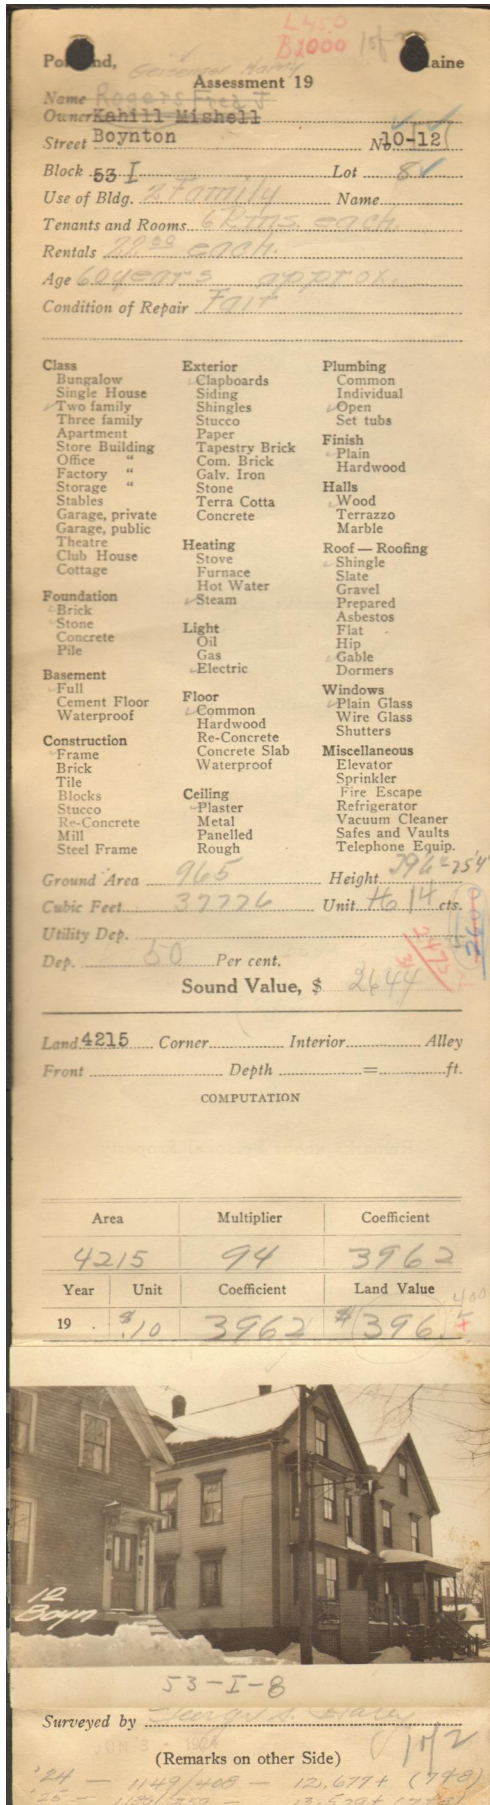 L450
B2000 1 of
Portland, Maine
Geiseman Harry
Assessment 19
Name Rogers Fred J
Owner Kahill Mishell
Street Boynton No. 10-12
Block 53 I Lot 8
Use of Bldg. 2 Family Name
Tenants and Rooms 6 Rms. each.
Rentals 22.00 each.
Age 60 years approx.
Condition of Repair Fair
Class
Bungalow
Single House
✓Two family
Three family
Apartment
Store Building
Office "
Factory "
Storage "
Stables
Garage, private
Garage, public
Theatre
Club House
Cottage
Foundation
✓Brick
✓Stone
Concrete
Pile
Basement
✓Full
Cement Floor
Waterproof
Construction
✓Frame
Brick
Tile
Blocks
Stucco
Re-Concrete
Mill
Steel Frame
Exterior
✓Clapboards
Siding
Shingles
Stucco
Paper
Tapestry Brick
Com. Brick
Galv. Iron
Stone
Terra Cotta
Concrete
Heating
Stove
Furnace
Hot Water
✓Steam
Light
Oil
Gas
✓Electric
Floor
✓Common
Hardwood
Re-Concrete
Concrete Slab
Waterproof
Ceiling
✓Plaster
Metal
Panelled
Rough
Plumbing
Common
Individual
✓Open
Set tubs
Finish
✓Plain
Hardwood
Halls
✓Wood
Terrazzo
Marble
Roof — Roofing
✓Shingle
Slate
Gravel
Prepared
Asbestos
Flat
Hip
✓Gable
Dormers
Windows
✓Plain Glass
Wire Glass
Shutters
Miscellaneous
Elevator
Sprinkler
Fire Escape
Refrigerator
Vacuum Cleaner
Safes and Vaults
Telephone Equip.
Ground Area 965 Height
Cubic Feet 37776 Unit 14 cts.
Utility Dep.
Dep. 50 Per cent.
Sound Value, $ 2644
Land 4215 Corner Interior Alley
Front Depth = ft.
COMPUTATION
Area Multiplier Coefficient
4215 94 3962
Year Unit Coefficient Land Value
400
19 $.10 3962 $396. +
12
Boyn
53-I-8
Surveyed by
(Remarks on other Side)
'24 — 1149/408 — 121,677+ (798)